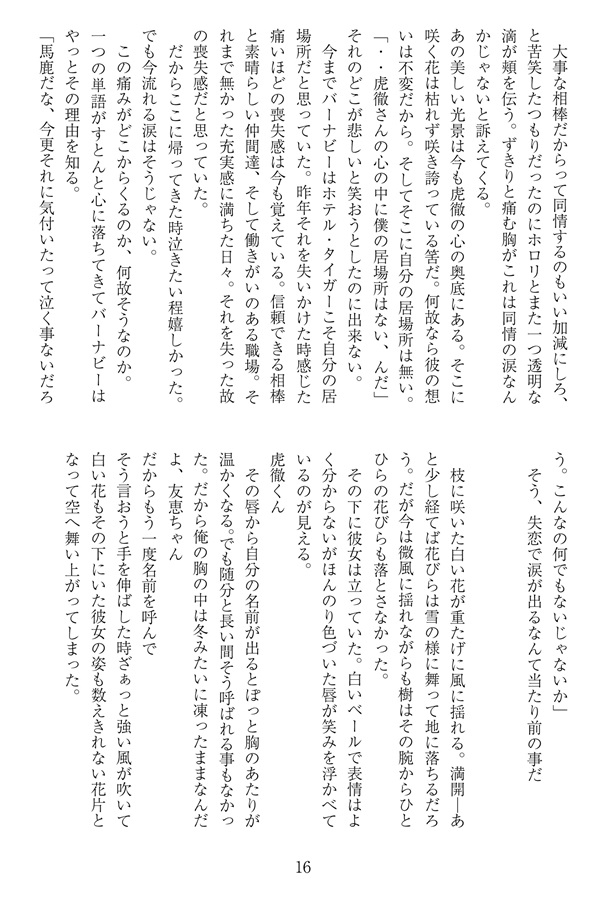 大事な相棒だからって同情するのもいい加減にしろ、
と苦笑したつもりだったのにホロリとまた一つ透明な
滴が頬を伝う。ずきりと痛む胸がこれは同情の涙なん
かじゃないと訴えてくる。
あの美しい光景は今も虎徹の心の奥底にある。そこに
咲く花は枯れず咲き誇っている筈だ。何故なら彼の想
いは不変だから。そしてそこに自分の居場所は無い。
「・・虎徹さんの心の中に僕の居場所はない、んだ」
それのどこが悲しいと笑おうとしたのに出来ない。
　今までバーナビーはホテル・タイガーこそ自分の居
場所だと思っていた。昨年それを失いかけた時感じた
痛いほどの喪失感は今も覚えている。信頼できる相棒
と素晴らしい仲間達、そして働きがいのある職場。そ
れまで無かった充実感に満ちた日々。それを失った故
の喪失感だと思っていた。
　だからここに帰ってきた時泣きたい程嬉しかった。
でも今流れる涙はそうじゃない。
　この痛みがどこからくるのか、何故そうなのか。
一つの単語がすとんと心に落ちてきてバーナビーは
やっとその理由を知る。
「馬鹿だな、今更それに気付いたって泣く事ないだろ
う。こんなの何でもないじゃないか」
　そう、失恋で涙が出るなんて当たり前の事だ
　枝に咲いた白い花が重たげに風に揺れる。満開―あ
と少し経てば花びらは雪の様に舞って地に落ちるだろ
う。だが今は微風に揺れながらも樹はその腕からひと
ひらの花びらも落とさなかった。
　その下に彼女は立っていた。白いベールで表情はよ
く分からないがほんのり色づいた唇が笑みを浮かべて
いるのが見える。
虎徹くん
　その唇から自分の名前が出るとぽっと胸のあたりが
温かくなる。でも随分と長い間そう呼ばれる事もなかっ
た。だから俺の胸の中は冬みたいに凍ったままなんだ
よ、友恵ちゃん
だからもう一度名前を呼んで
そう言おうと手を伸ばした時ざぁっと強い風が吹いて
白い花もその下にいた彼女の姿も数えきれない花片と
なって空へ舞い上がってしまった。
16